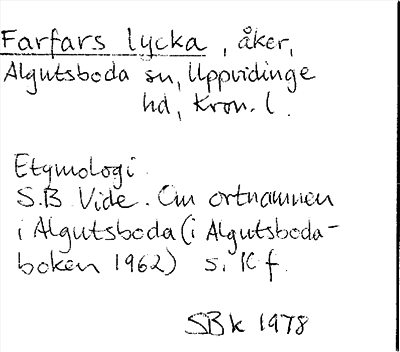 Farfars lycka, åker,
Algutsboda sn, Uppvidinge
hd, Kron. l.
Etymologi
S.B Vide. Om ortnamnen
i Algutsboda (i Algutsboda-
boken 1962) s. 10 f.
SBk 1978